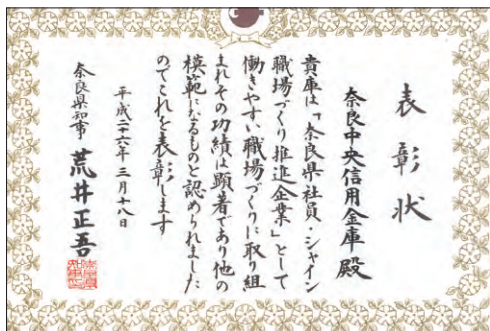 表彰状
奈良中央信用金庫殿
貴庫は「奈良県社員・シャイン
職場づくり推進企業」として
働きやすい職場づくりに取り組
まれその功績は顕著であり他の
模範になるものと認められました
のでこれを表彰します
平成二十六年三月十八日
奈良県知事 荒井正吾